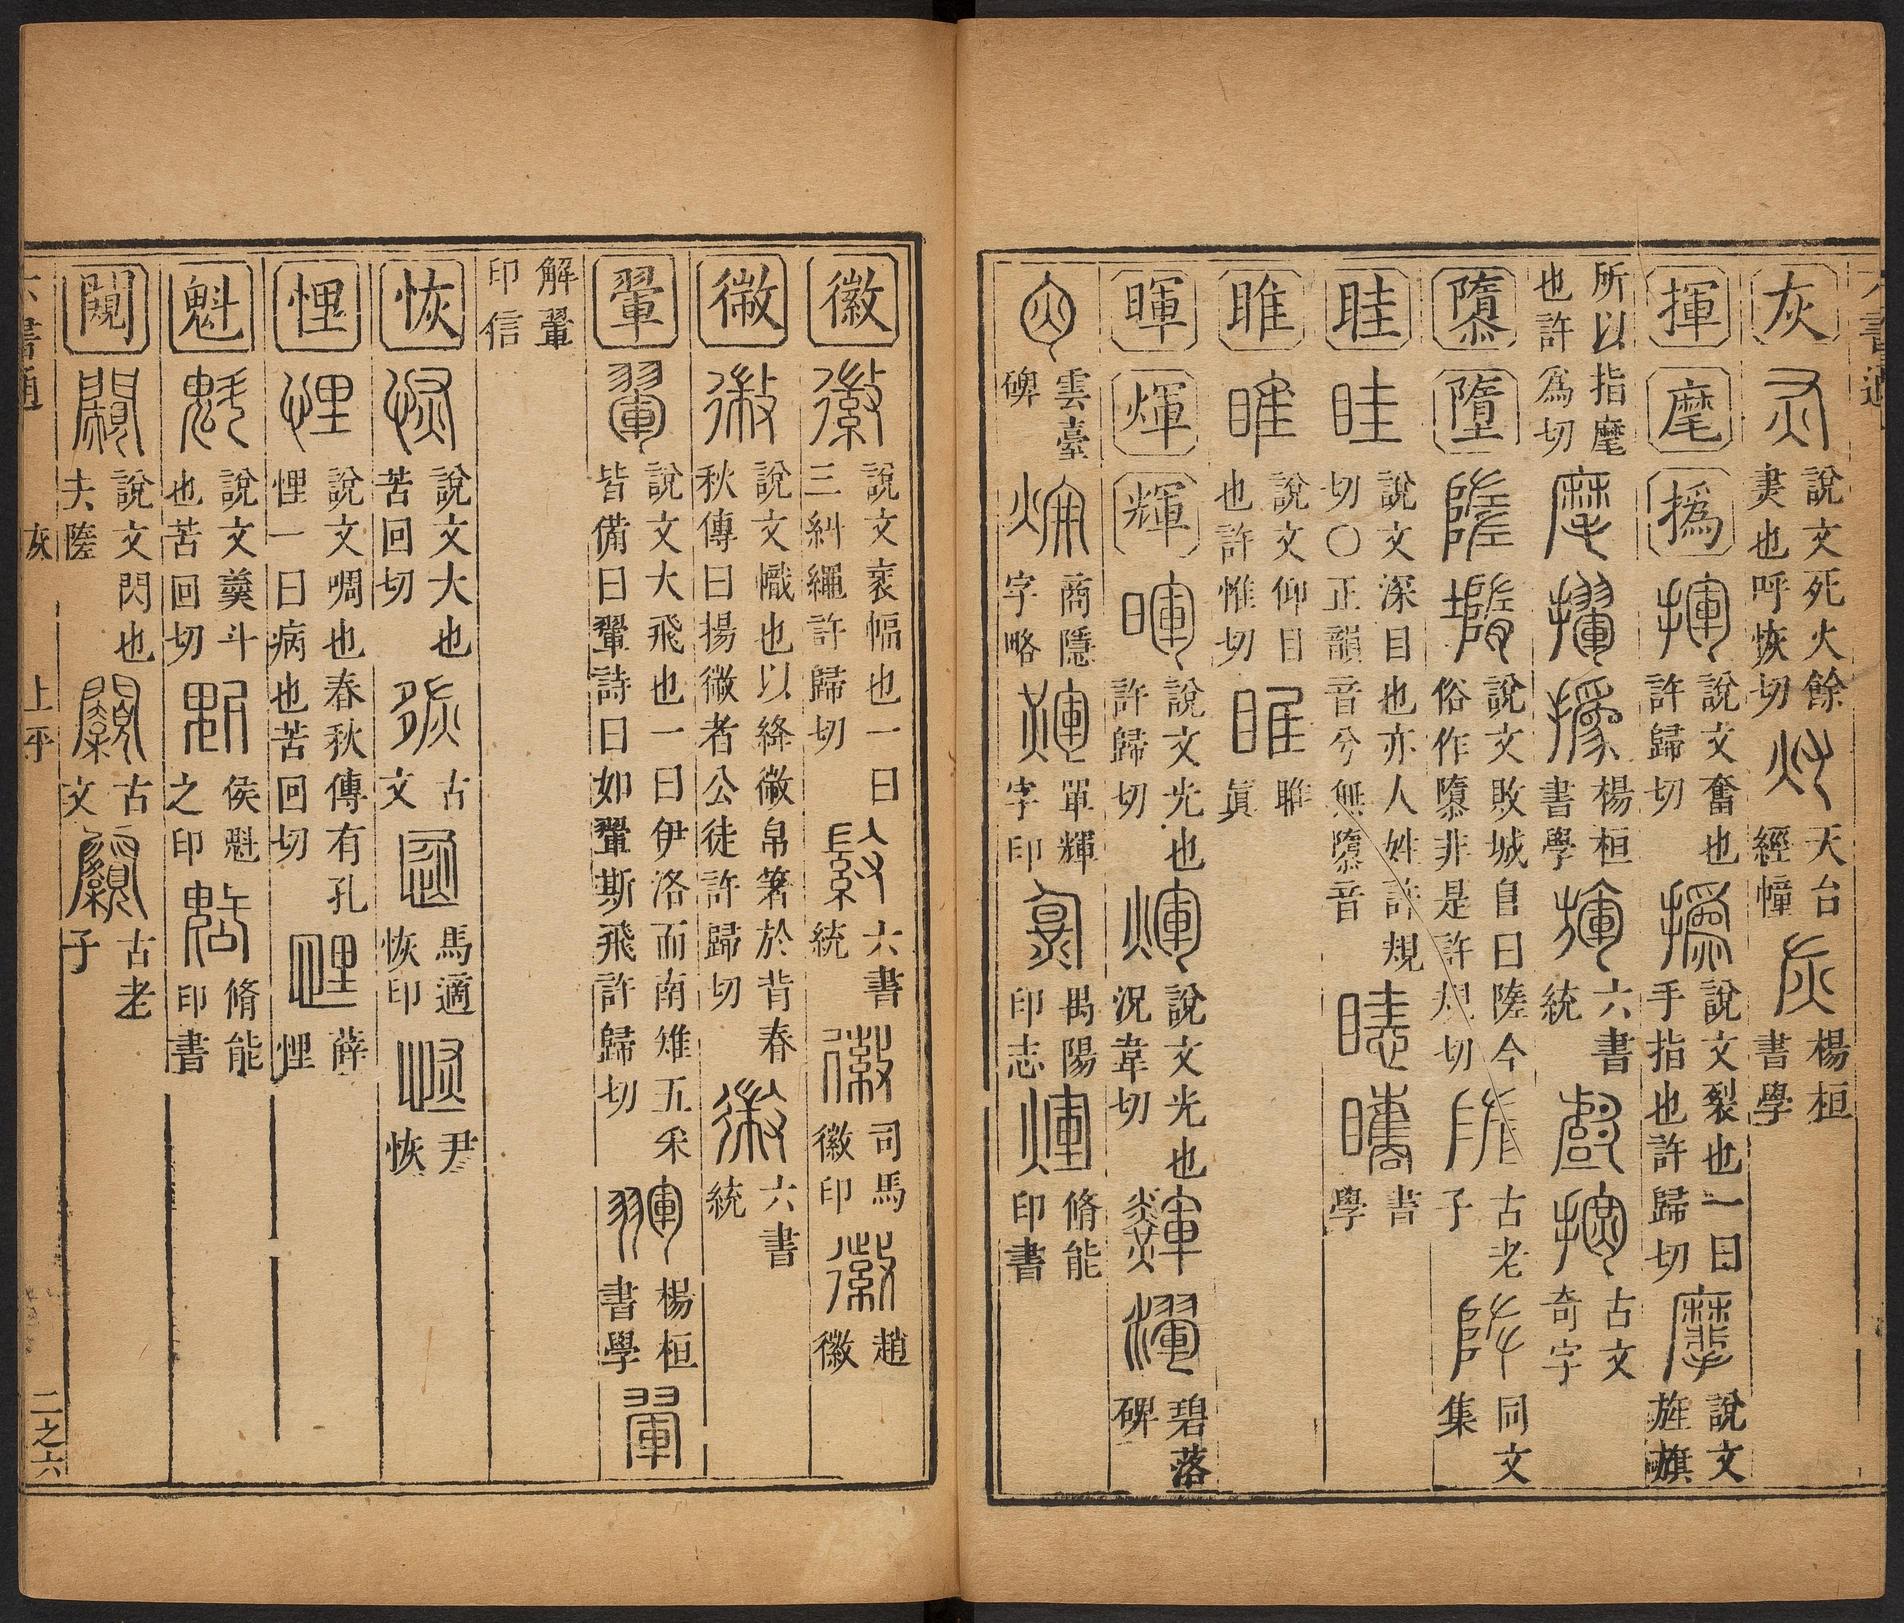 六書通
灰 說文死火餘㶳也呼恢切 天台經幢 楊桓書學
揮 麾 撝 說文奮也許歸切 說文裂也一曰手指也許歸切 說文旌旗
所以指麾也許爲切 楊桓書學 六書統 古文奇字
隳 墮 說文敗城𨸏曰隓今俗作隳非是許規切 古老子 同文集
眭 說文深目也亦人姓許規切〇正韻音兮無隳音 書學
睢 說文仰目也許惟切 睢 眞
暉 煇 輝 說文光也許歸切 說文光也況韋切 碧落碑
雲臺碑 商隱字略 單輝字印 禺陽印志 脩能印書
徽 說文衺幅也一曰三糾繩許歸切 六書統 司馬徽印 趙徽
㣲 說文幟也以絳㣲帛箸於背春秋傳曰揚㣲者公徒許歸切 六書統
翬 說文大飛也一曰伊洛而南雉五采皆備曰翬詩曰如翬斯飛許歸切 楊桓書學
解翬印信
恢 說文大也苦回切 古文 馬適恢印 尹恢
悝 說文啁也春秋傳有孔悝一曰病也苦回切 薛悝
魁 說文羹斗也苦回切 侯魁之印 脩能印書
闚 說文閃也夫隓 古文 古老子
六書通 灰 上平 二之六